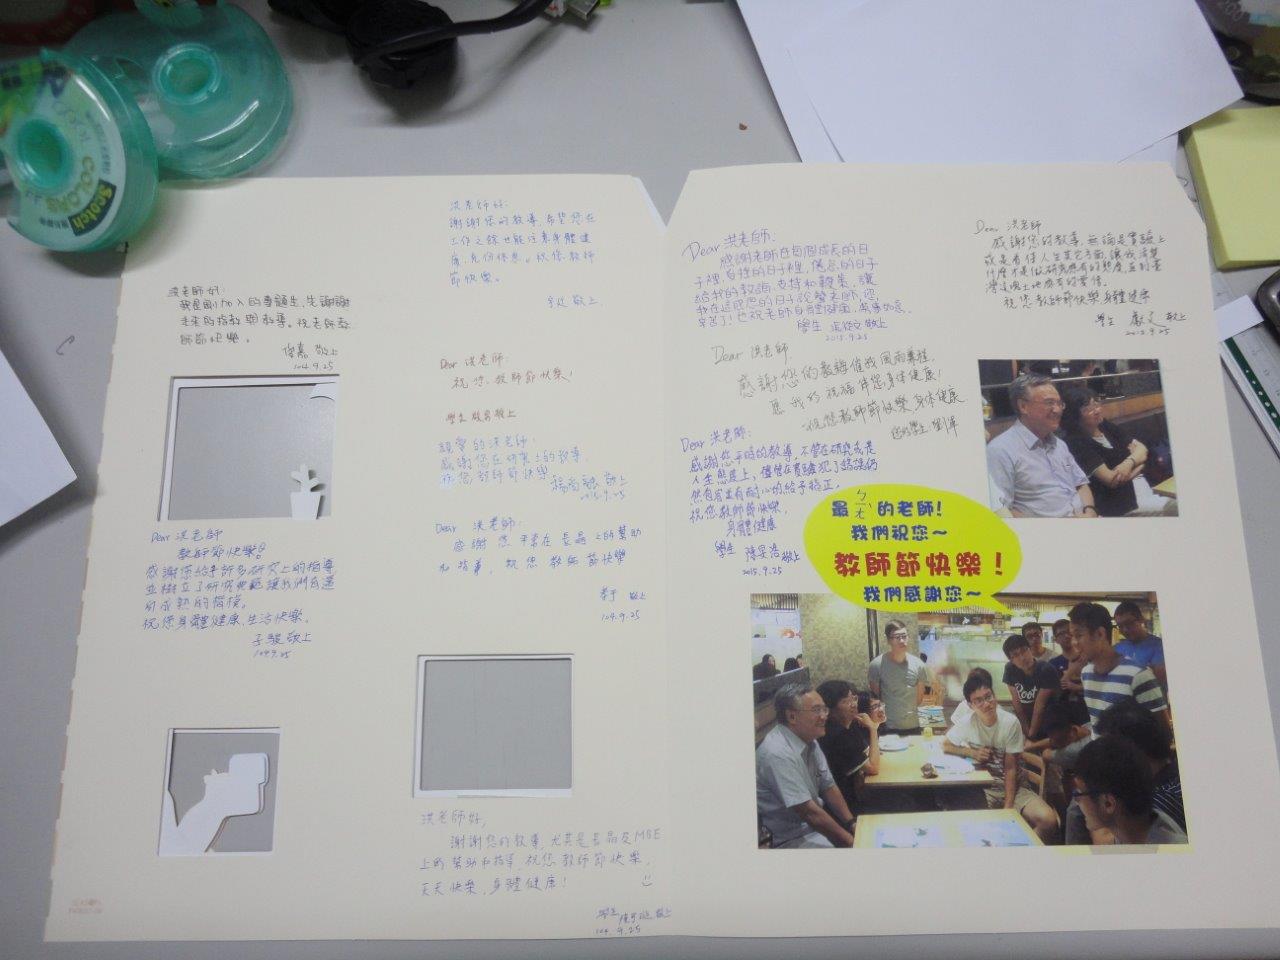 洪老師好:
謝謝您的教導,希望您在
工作之餘也能注意身體健
康,充份休息。祝您教師
節快樂。
敬上
洪老師好:
我是剛加入的專題生,先謝謝
未來的指教與教導。祝老師教
師節快樂。
俊嘉 敬上
104.9.25
Dear 洪老師:
祝您 教師節快樂!
學生 敬上
親愛的洪老師:
感謝您在研究上的教導,
祝您教師節快樂
敬上
2015.9.25
Dear 洪老師
教師節快樂!
感謝您給予許多研究上的指導,
並樹立了研究典範讓我們有選
的楷模。
祝您身體健康、生活快樂。
子駿 敬上
104.9.25
Dear 洪老師:
感謝 您 平常在 長晶 上的幫助
和指導, 祝您 教師節快樂
敬上
104.9.25
洪老師好,
謝謝您的教導,尤其是長晶及MBE
上的幫助和指導 祝您教師節快樂,
天天快樂,身體健康!
學生 敬上
104.9.25
Dear 洪老師:
感謝老師在每個成長的日
子裡,自挫的日子裡,倦怠的日子
給我的教誨、支持和鞭策,讓
我在這
辛苦了!也祝老師身體健康,萬事如意。
學生 敬上
2015.9.25
Dear 洪老師
感謝您的教導,無論是實驗上
或是看待人生其它方面,讓我清楚
什麼才是做研究應有的態度,並到臺
灣這塊土地應有的愛惜。
祝您教師節快樂 身體健康
學生 敬上
2015.9.25
Dear 洪老師
感謝您的教誨催我風雨兼程,
願我的祝福伴您身体健康!
祝您教師節快樂 身体健康
您的學生: 劉
Dear 洪老師:
感謝您平時的教導,不管在研究或是
人生態度上,儘管在實驗犯了錯誤仍
然有耐心的給予指正。
祝您教師節快樂,
身體健康
學生 陳 浩 敬上
2015.9.25
最ㄅㄤˋ的老師!
我們祝您~
教師節快樂!
我們感謝您~
Scotch
COLORS